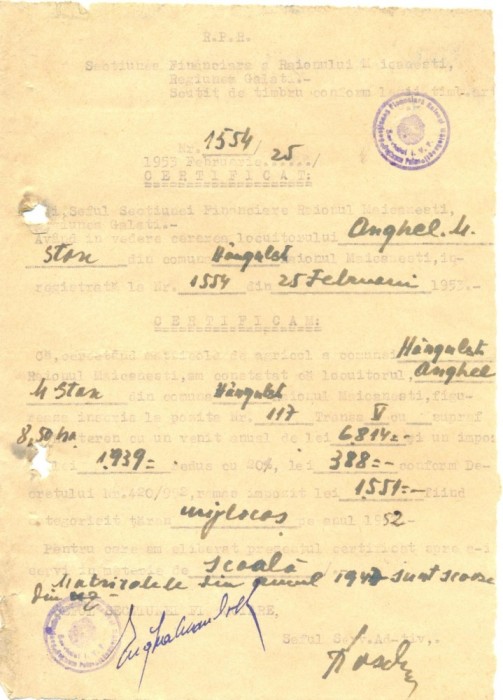 R.P.R.
Sectiunea Financiara a Raionului Maicanesti,
Regiunea Galati.-
Scutit de timbru conform legii timb.
Nr. 1554/
1953 Februarie 25/
CERTIFICAT:
Seful Sectiunei Financiare Raionul Maicanesti,
Galati.-
Având in vedere cererea locuitorului Anghel M.
Stan din comuna Hângulesti Raionul Maicanesti, in-
registrată la Nr. 1554 din 25 Februarie 1953.-
CERTIFICAM:
Că, cercetând de agricol a comunei Hângulesti
Raionul Maicanesti, am constatat că locuitorul, Anghel
M Stan din comuna Hângulesti Raionul Maicanesti, figu-
inscris la pozitia Nr. 117 Transa V cu supraf
8,50 ha teren cu un venit anual de lei 6.814=- si un impo
lei 1.939=- redus cu 20%, lei 388=- conform De-
cretului nr.420/952, rămas impozit lei 1551=- Fiind
categorisit țăran mijlocas pe anul 1952
Pentru care am eliberat prezentul certificat spre a-i
servi scoală
Matricolele din anul 194 sunt scoase
din uz -
SECTIUNEI FINANCIARE,
Seful Serv. Ad-tiv,